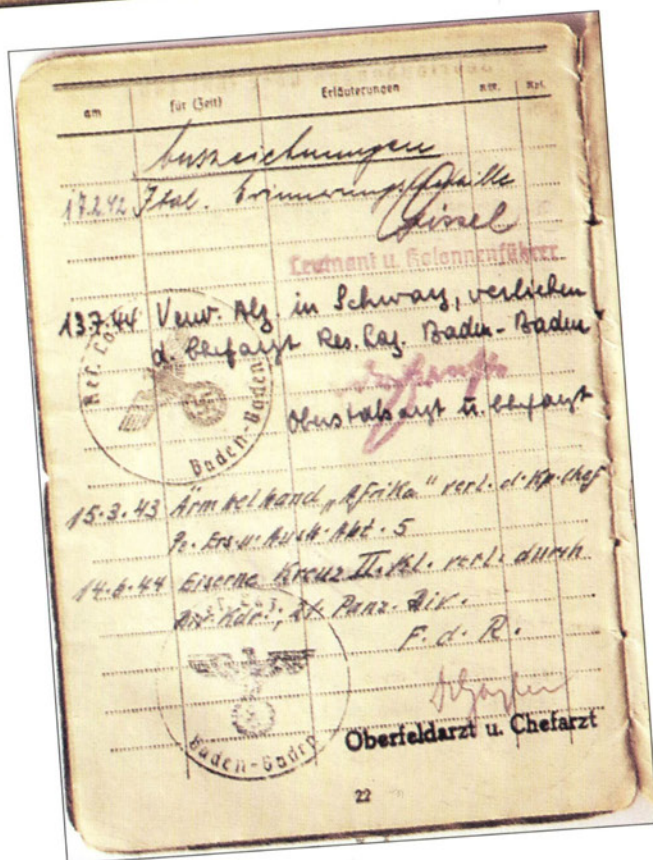 am für (Zeit) Erläuterungen RW. Rpf.
Auszeichnungen
17.2.42 Ital. Erinnerungs
Leutnant u. Kolonnenführer
13.7.44 Verw. Abz. in Schwarz, verliehen
d. Chefarzt Res. Laz. Baden-Baden
Baden-Baden
Oberstabsarzt u. Chefarzt
15.3.43 Ärmelband „Afrika" verl. d. Kp. Chef
Pz. Ers. u. Ausb. Abt. 5
14.6.44 Eiserne Kreuz II. Kl. verl. durch
Div. Kdr., 21. Panz. Div.
F. d. R.
Baden-Baden
Oberfeldarzt u. Chefarzt
22